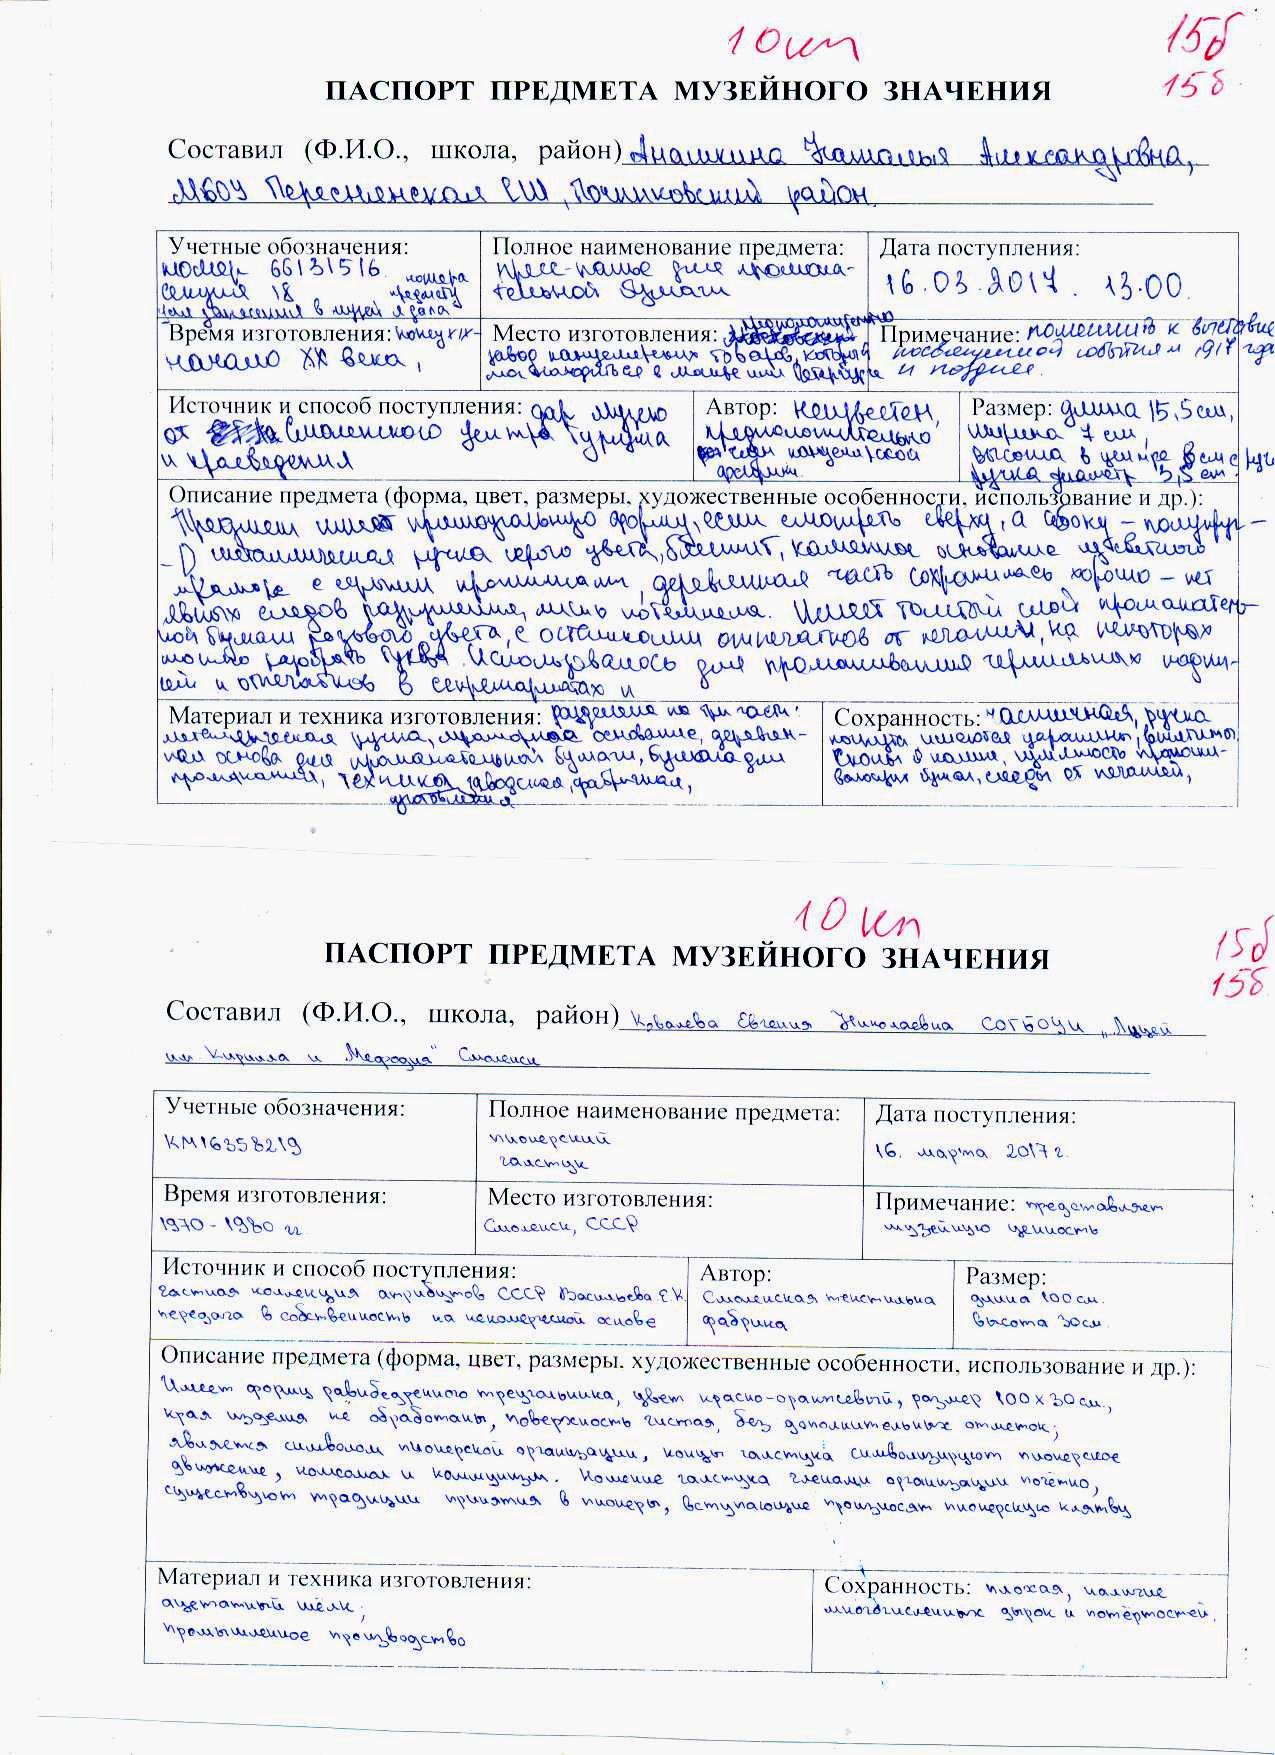 10кл
15б
15б
ПАСПОРТ ПРЕДМЕТА МУЗЕЙНОГО ЗНАЧЕНИЯ
Составил (Ф.И.О., школа, район) Анашкина Наталья Александровна,
МБОУ Переснянская СШ, Починковский район.
Учетные обозначения:
номер 66131516
секция 18
номера предмету
для занесения в музей я дала
Полное наименование предмета:
пресс-папье для промокательной бумаги
Дата поступления:
16.03.2017. 13.00.
Время изготовления: конец XIX-
начало XX века,
Место изготовления: предположительно
завод канцелярских товаров, который
мог находиться в Москве или Петербурге
Примечание: поместить к выставке
посвященной событиям 1917 года
и позднее.
Источник и способ поступления: дар музею
от Смоленского центра туризма
и краеведения
Автор: неизвестен,
предположительно
канцелярской
фабрики.
Размер: длина 15,5 см,
ширина 7 см,
высота в центре 8 см с руч
ручка диаметр 3,5 см.
Описание предмета (форма, цвет, размеры, художественные особенности, использование и др.):
Предмет имеет прямоугольную форму, если смотреть сверху, а сбоку – полукруг –
металлическая ручка серого цвета, блестит, каменное основание из светлого
мрамора с серыми прожилками, деревянная часть сохранилась хорошо – нет
явных следов разрушения, лишь потемнела. Имеет толстый слой промокатель-
ной бумаги розового цвета, с остатками отпечатков от печатей, на некоторых
можно разобрать буквы. Использовалось для промакивания чернильных надпи-
сей и отпечатков в секретариатах и
Материал и техника изготовления: разделена на три части:
металлическая ручка, мраморное основание, деревян-
ная основа для промокательной бумаги, бумага для
промакания, техника изготовления заводская, фабричная,
Сохранность: частичная, ручка
погнута имеются царапины, вмятины,
сколы в камне, промокивающих бумаг, следы от печатей,
10 кл
15б
15б
ПАСПОРТ ПРЕДМЕТА МУЗЕЙНОГО ЗНАЧЕНИЯ
Составил (Ф.И.О., школа, район) Ковалева Евгения Николаевна СОГБОУИ „Лицей
им. Кирилла и Мефодия“ Смоленск
Учетные обозначения:
КМ16358219
Полное наименование предмета:
пионерский
галстук
Дата поступления:
16. марта 2017 г.
Время изготовления:
1970 - 1980 гг
Место изготовления:
Смоленск, СССР
Примечание: представляет
музейную ценность
Источник и способ поступления:
частная коллекция атрибутов СССР Васильева Е.К.
передача в собственность на некомерческой основе
Автор:
Смоленская текстильна
фабрика
Размер:
длина 100 см.
высота 30 см.
Описание предмета (форма, цвет, размеры, художественные особенности, использование и др.):
Имеет форму равнобедренного треугольника, цвет красно-оранжевый, размер 100 х 30 см.,
края изделия не обработаны, поверхность чистая, без дополнительных отметок;
является символом пионерской организации, концы галстука символизируют пионерское
движение, комсомол и коммунизм. Ношение галстука членами организации почётно,
существуют традиции принятия в пионеры, вступающие произносят пионерскую клятву
Материал и техника изготовления:
ацетатный шёлк;
промышленное производство
Сохранность: плохая, наличие
многочисленных дырок и потёртостей.